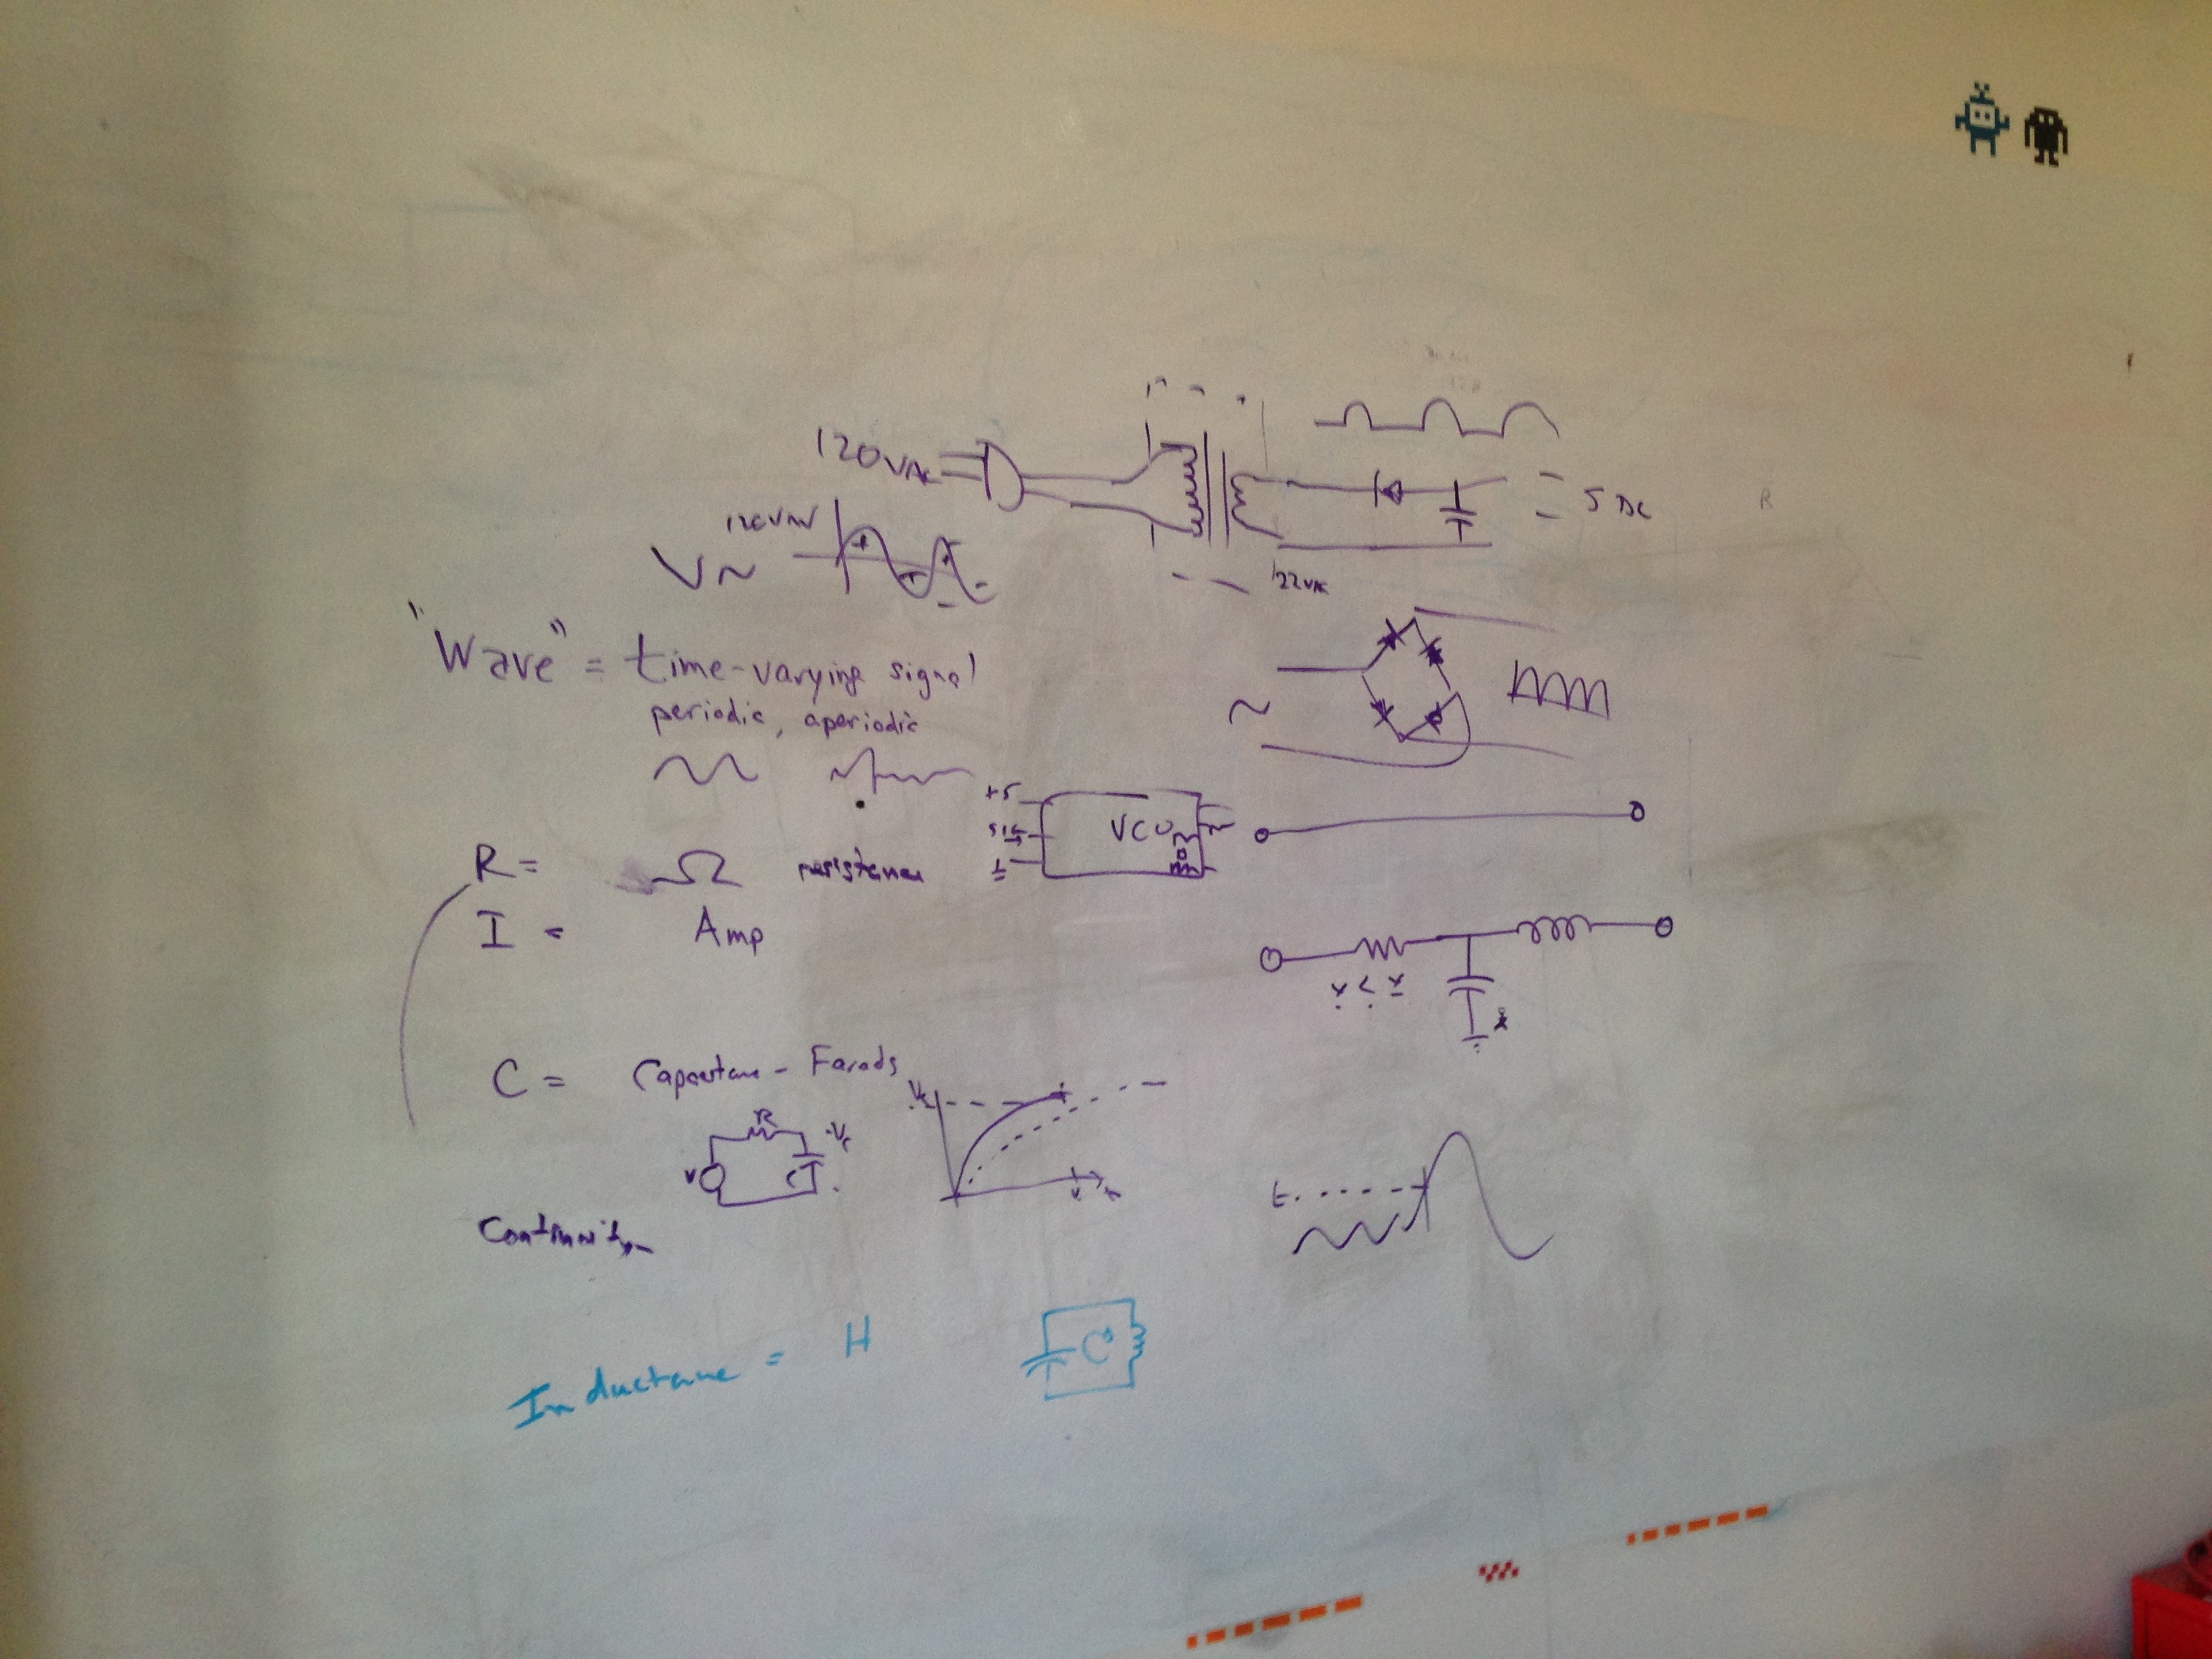 120VAC
5 DC
R
V~
"Wave" = time-varying signal
periodic, aperiodic
+5
VCO
R = Ω resistance
I = Amp
C = Capacitance - Farads
R
V
C
Continuity
t
Inductance = H